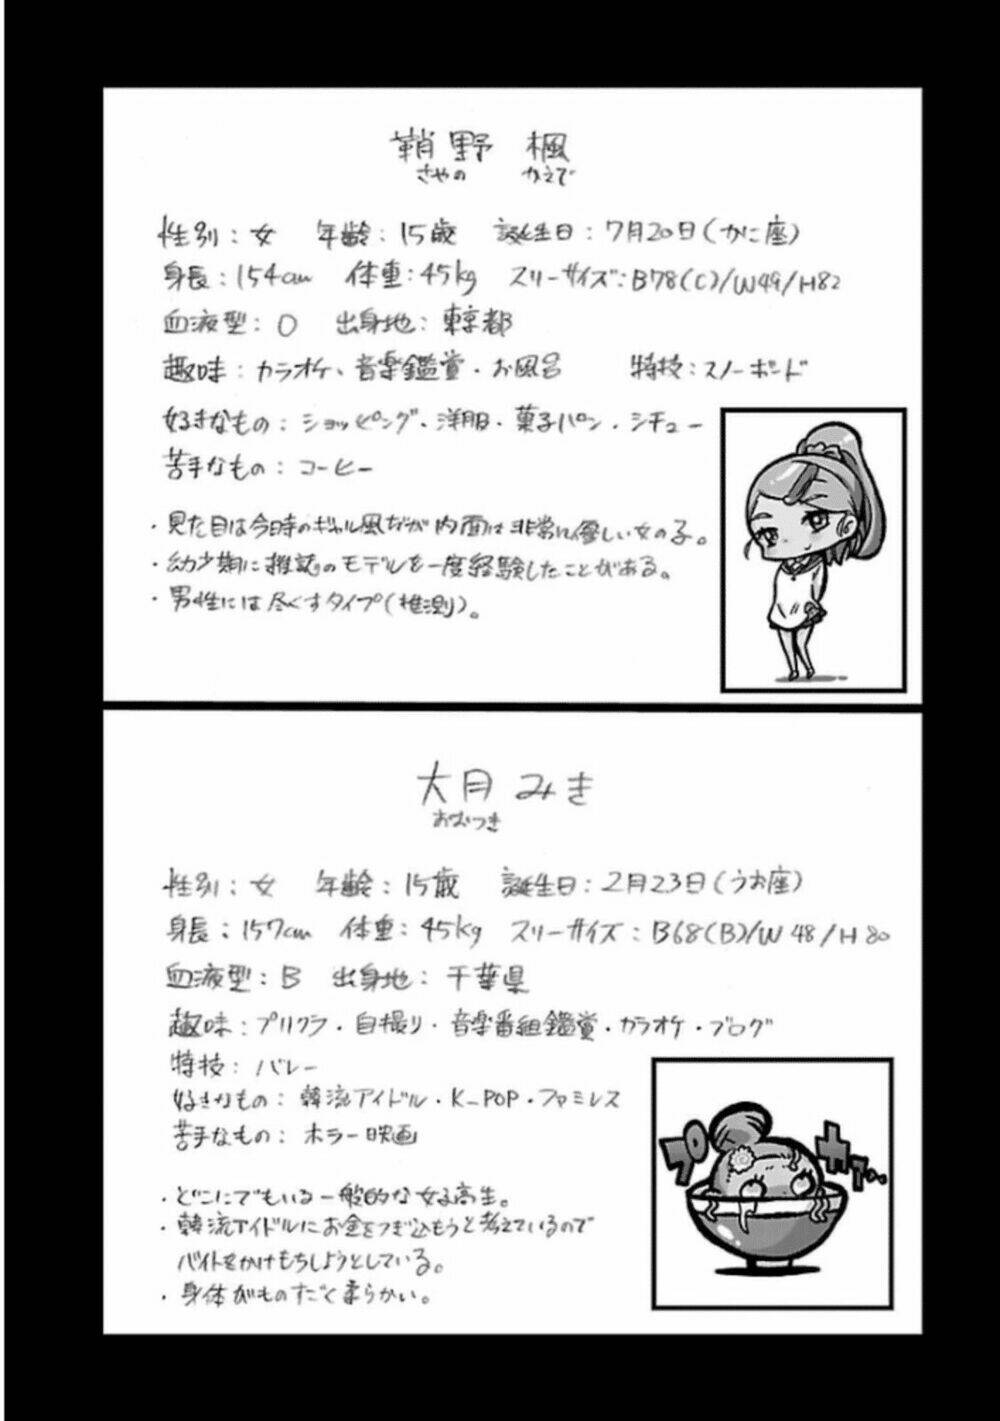 鞘野 楓
さやの かえで
性別：女 年齢：15歳 誕生日：7月20日(かに座)
身長：154cm 体重：45kg スリーサイズ：B78(C)/W49/H82
血液型：O 出身地：東京都
趣味：カラオケ、音楽鑑賞・お風呂 特技：スノーボード
好きなもの：ショッピング・洋服・菓子パン・シチュー
苦手なもの：コーヒー
・見た目は今時のギャル風だが内面は非常に優しい女の子。
・幼少期に雑誌のモデルを一度経験したことがある。
・男性には尽くすタイプ(推測)。
大月 みき
おおつき
性別：女 年齢：15歳 誕生日：2月23日(うお座)
身長：157cm 体重：45kg スリーサイズ：B68(B)/W48/H80
血液型：B 出身地：千葉県
趣味：プリクラ・自撮り・音楽番組鑑賞・カラオケ・ブログ
特技：バレー
好きなもの：韓流アイドル・K-POP・ファミレス
苦手なもの：ホラー映画
・どこにでもいる一般的な女子高生。
・韓流アイドルにお金をつぎ込もうと考えているので
バイトをかけもちしようとしている。
・身体がものすごく柔らかい。